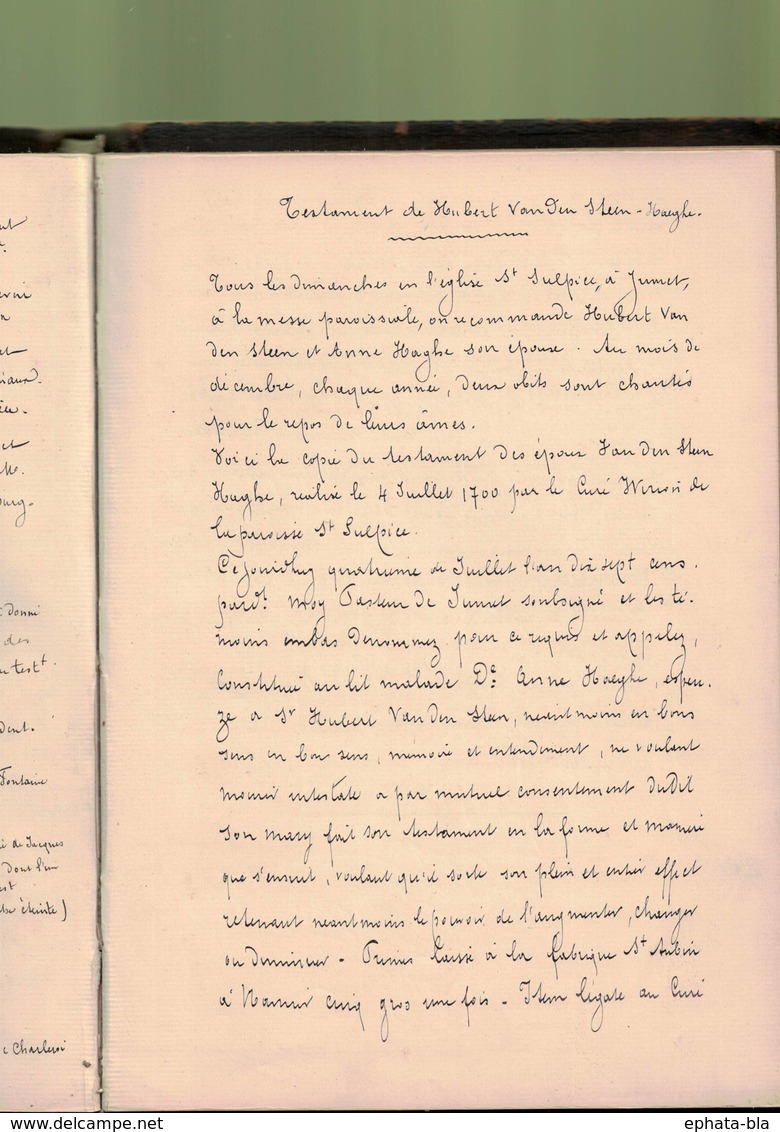 nt
vroi
n
et
iaux.
ée.
et
bourg-
donné
des
testt.
dent.
Fontaine
é de Jacques
dont l'un
est
éteinte)
c Charleroi
Testament de Hubert Van Den Steen - Haeghe.
Tous les dimanches en l'église St Sulpice, à Jumet,
à la messe paroissiale, on recommande Hubert Van
den Steen et Anne Haghe son épouse. Au mois de
décembre, chaque année, deux obits sont chantés
pour le repos de leurs âmes.
Voici la copie du testament des époux Van den Steen
Haghe, réalisé le 4 Juillet 1700 par le Curé de
la paroisse St Sulpice.
Cejourdhuy quatrieme de Juillet l'an dix sept cens.
pardt moy Pasteur de Jumet soubsigné et les té-
moins embas denommez, pour ce requis et appelez,
Constitué au lit malade De Anne Haeghe, espeu-
ze a Sr Hubert Van den Steen, neantmoins en bons
sens en bon sens, memoire et entendement, ne voulant
mourir intestate a par mutuel consentement dudit
son mary fait son testament en la forme et maniere
que s'ensuit, voulant qu'il sorte son plein et entier effect
retenant neantmoins le pouvoir de l'augmenter, changer
ou diminuer - Primes laisse à la fabrique St Aubin
à Namur cinq gros une fois - Item légate au Curé
www.delcampe.net
ephata-bla